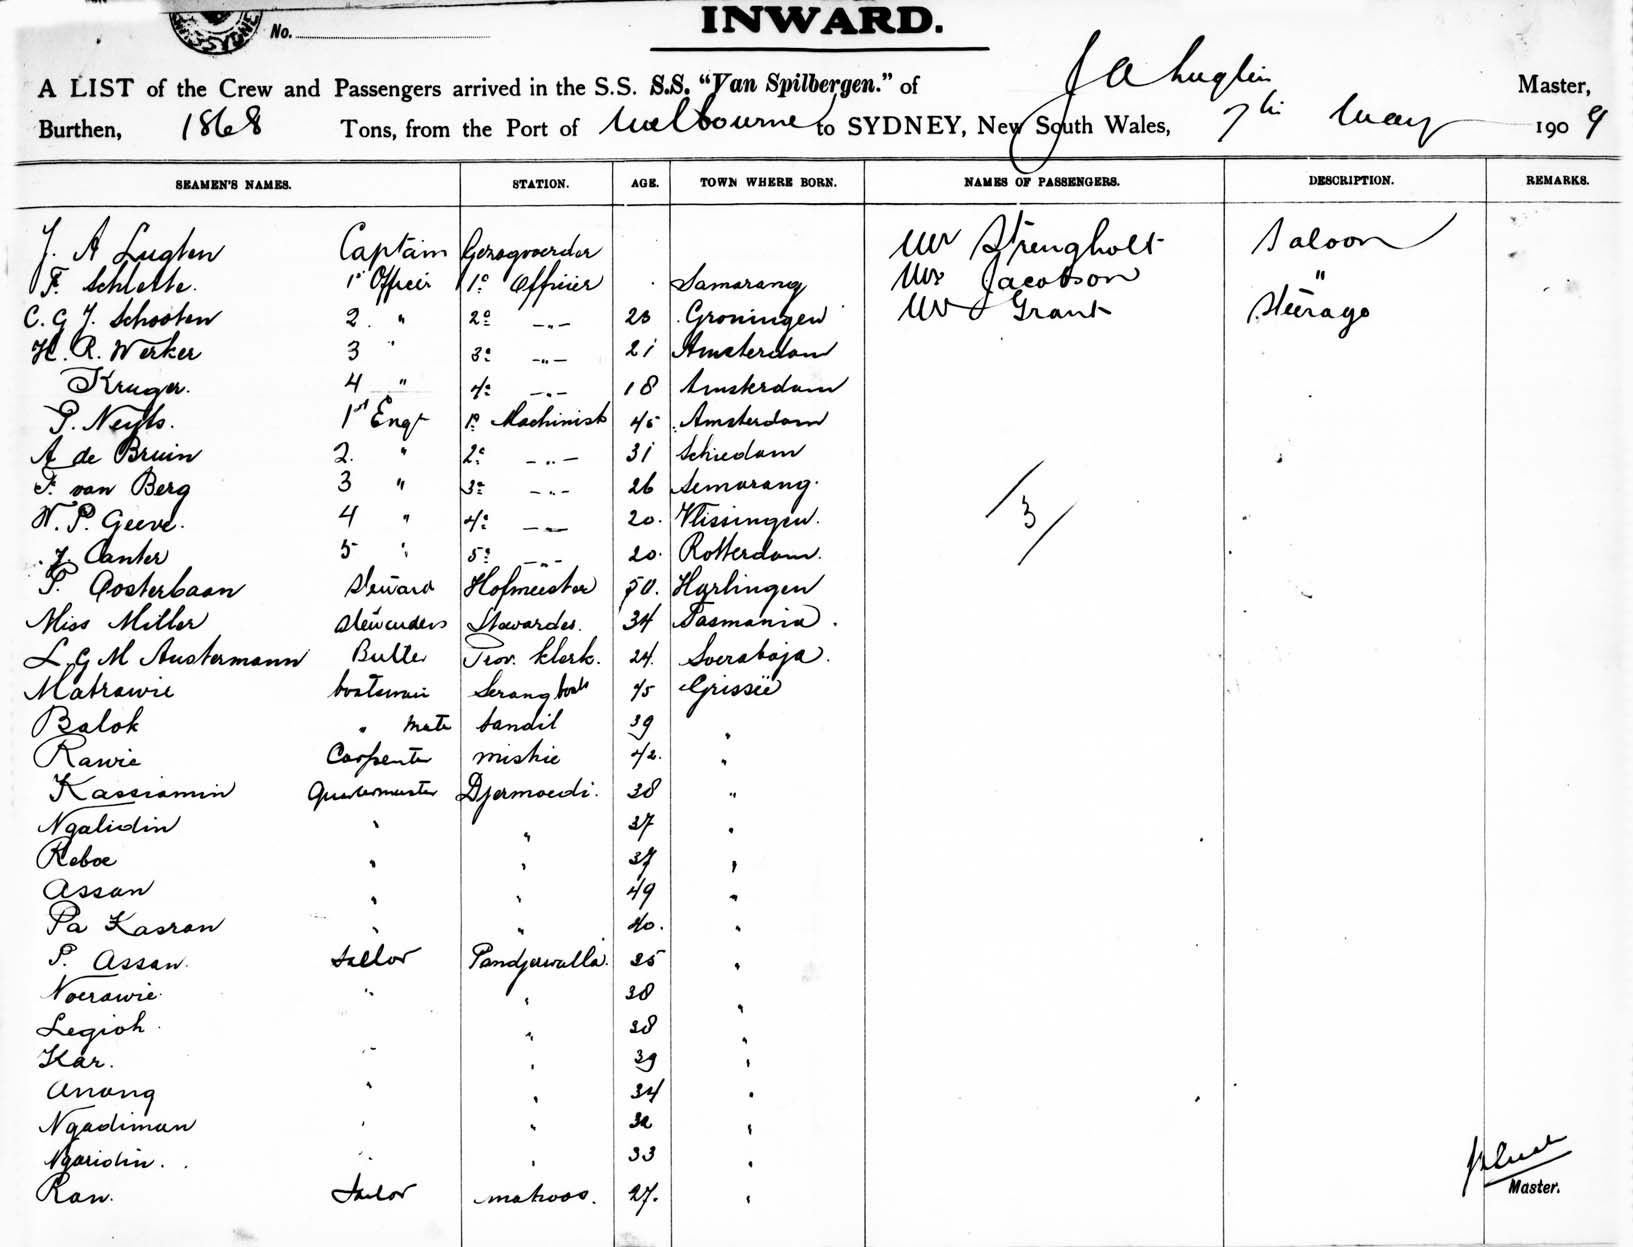 SYDNEY
No.
INWARD.
A LIST of the Crew and Passengers arrived in the S.S. S.S. "Van Spilbergen." of J A Lugten Master,
Burthen, 1868 Tons, from the Port of Melbourne to SYDNEY, New South Wales, 7th May 1909
SEAMEN'S NAMES. STATION. AGE. TOWN WHERE BORN. NAMES OF PASSENGERS. DESCRIPTION. REMARKS.
J. A Lugten Captain Gezagvoerder Mr Strengholt Saloon
F. Schlette. 1st Officer 1e Officier Samarang Mrs Jacobson "
C. G J. Schooten 2. " 2e -"- 23 Groningen Mr Grant Steerage
H. R. Werker 3 " 3e -"- 21 Amsterdam
Kruger. 4 " 4e -"- 18 Amsterdam
P. Neyts. 1st Engr 1e Machinist 45 Amsterdam
A de Bruin 2. " 2e -"- 31 Schiedam
F. van Berg 3 " 3e -"- 26 Semarang.
W. P. Geeve. 4 " 4e -"- 20. Vlissingen.
J Canter 5 " 5e -"- 20. Rotterdam.
/3/
P. Oosterbaan Steward Hofmeester 50. Harlingen
Miss Miller Stewardess Stewardes. 34 Tasmania.
L. G M Austermann Butler Prov. klerk. 24. Soerabaja.
Matrawie boatswain Serang boots 45 Grissëe
Balok " mate tandil 39 "
Rawie Carpenter mistrie 42. "
Kassiamin Quartermaster Djermoedi. 38 "
Ngalidin " " 37 "
Reboe " " 37 "
Assan " " 49 "
Pa Kasran " " 40. "
P. Assan. Sailor Pandjerwalla. 35 "
Noerawie. " " 38 "
Legioh. " 38 "
Kar. " " 39 "
Anang " " 34 "
Ngadiman " " 32 "
Ngaridin. " " 33 "
Ran. Sailor matroos. 27. "
Master.